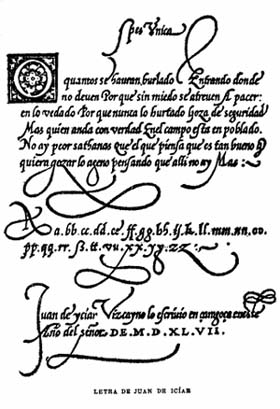 Spes Unica
O quantos se hauran burlado Entrando donde
no deuen Porque sin miedo se atreuen A pacer
en lo vedado Por que nunca lo hurtado Goza de seguridad
Mas quien anda con verdad En el campo esta en poblado.
No ay peor sathanas Que el que piensa que es tan bueno
quiera gozar lo ageno pensando que alli no ay Mas
A a. bb. cc. dd. ee. ff. gg. hh. ij. kk. ll. mm. nn. oo.
pp. qq. rr. ss. tt. vu. xx. yy. zz
Juan de yciar Vizcayno lo escriuia en çaragoça en este
Año del señor. D E. M. D. X L. V I I.
LETRA DE JUAN DE ICÍAR